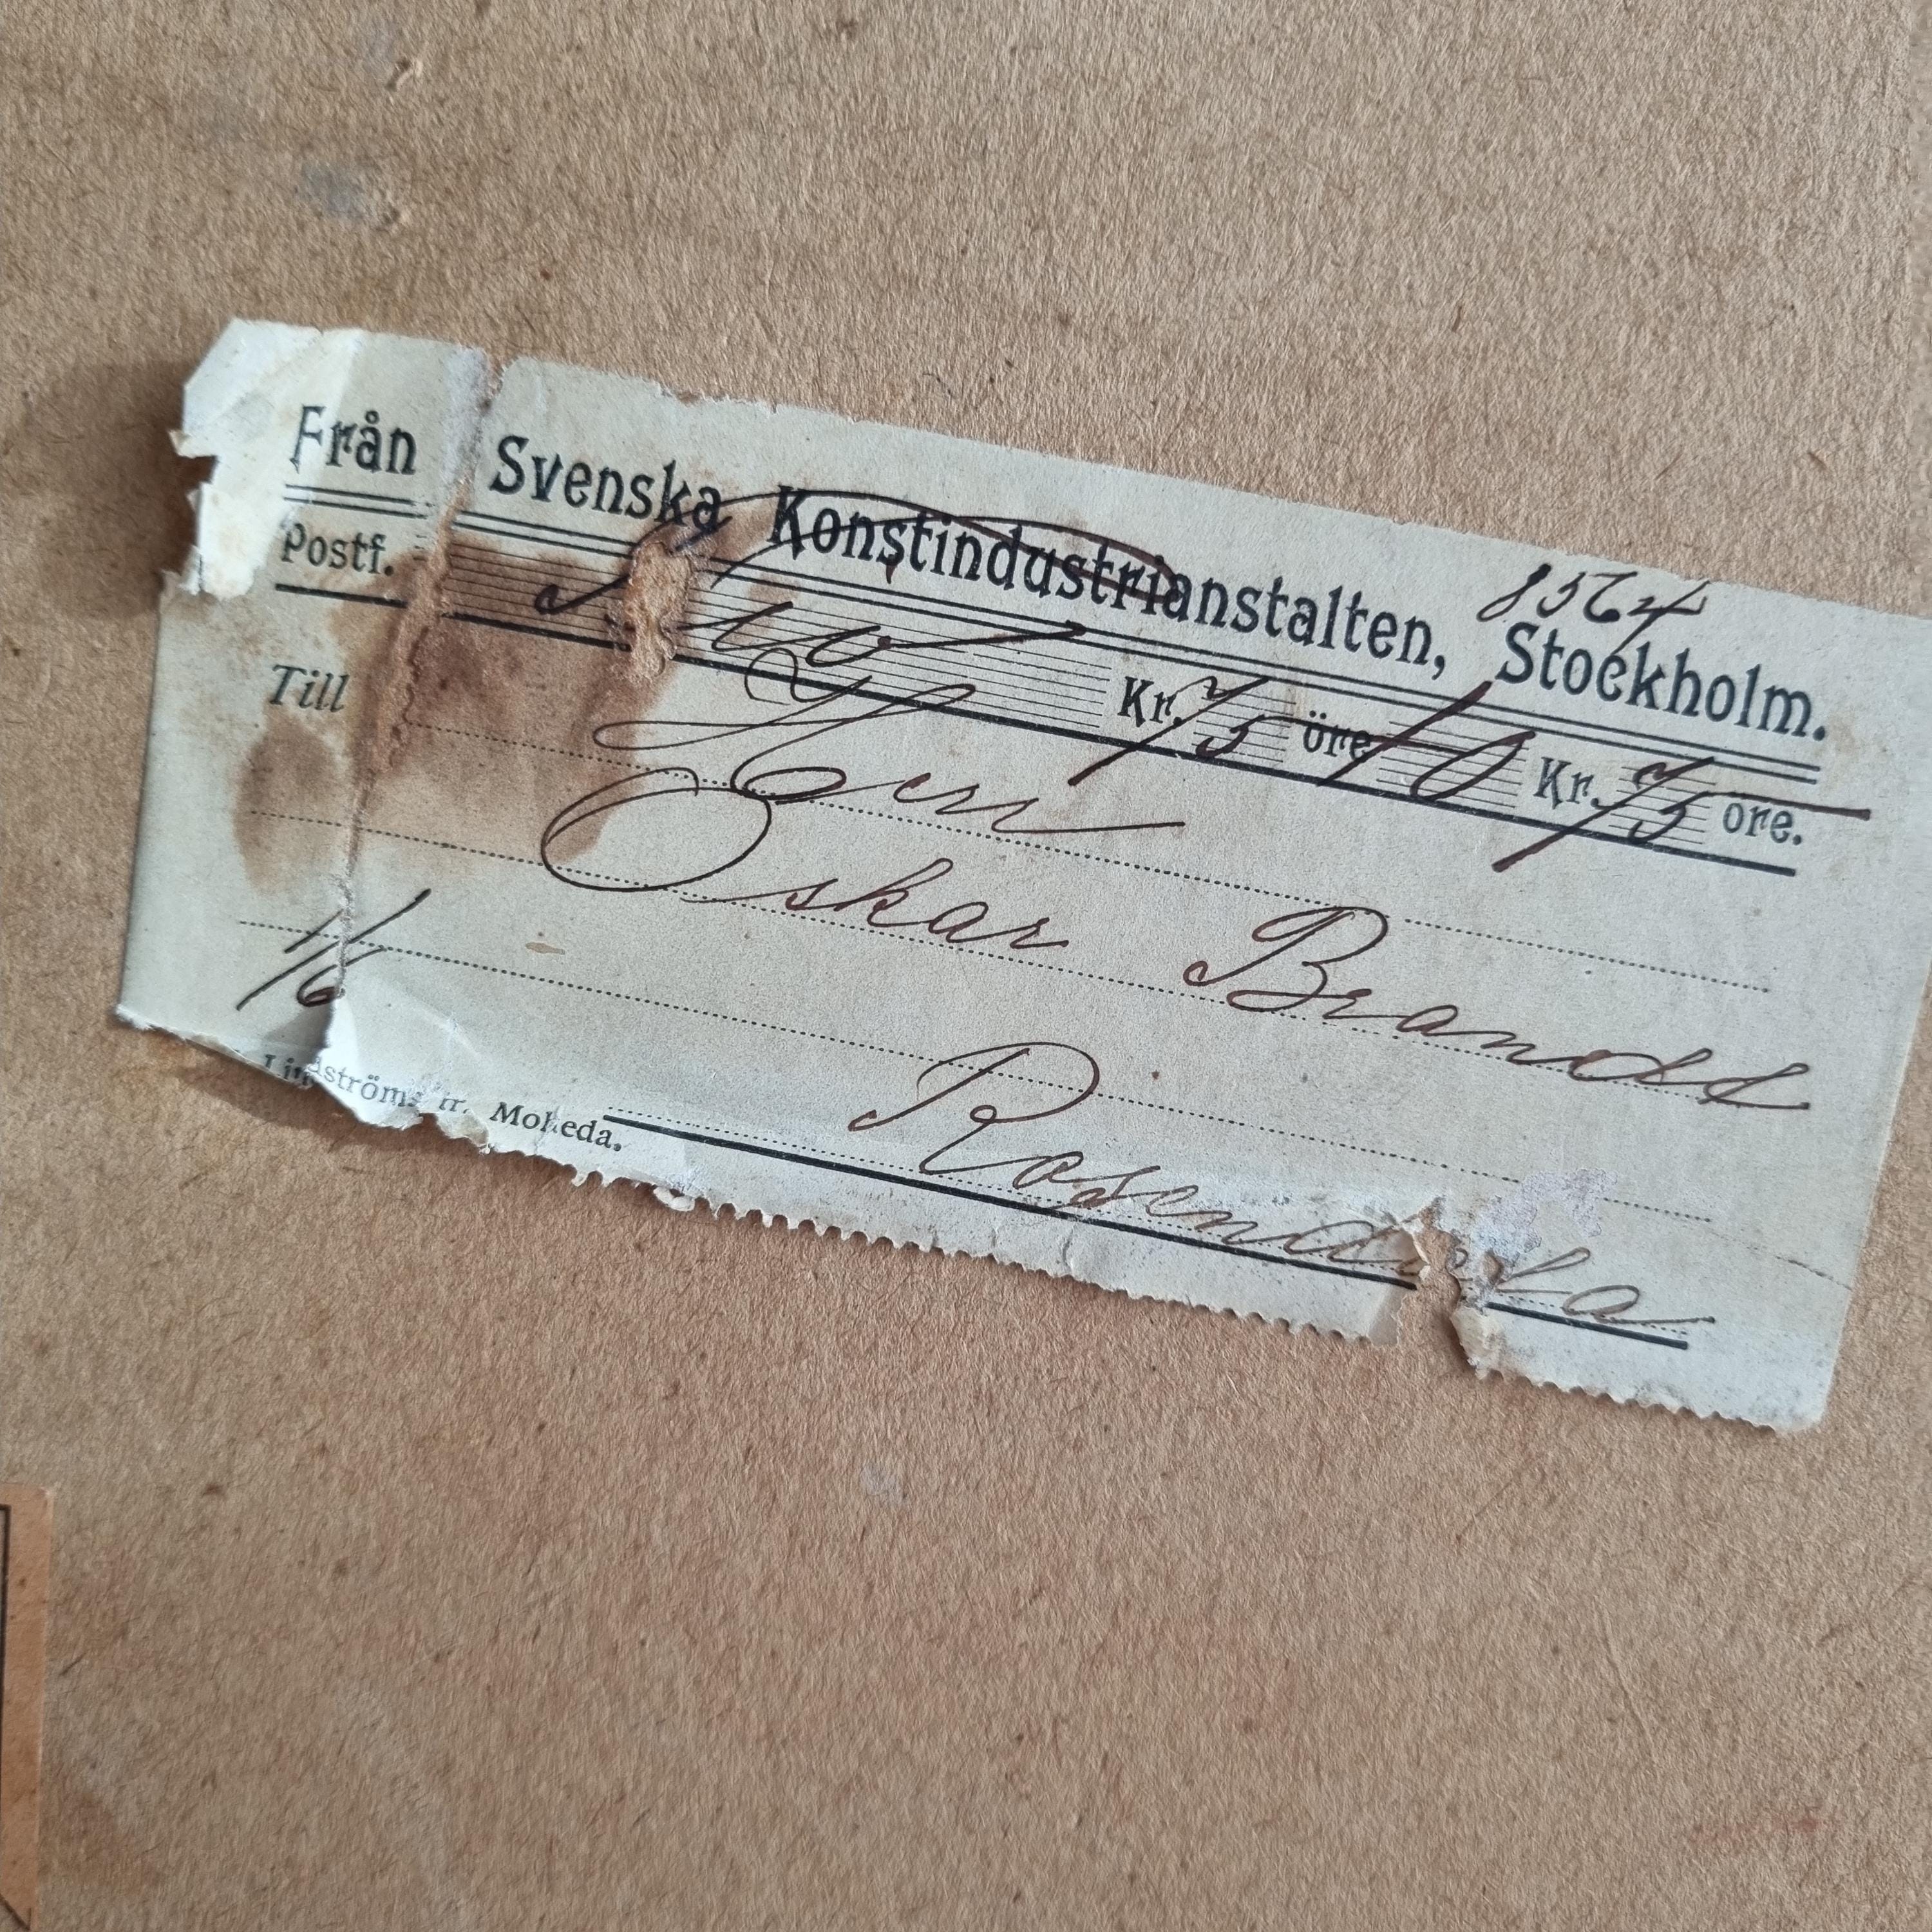 Från Svenska Konstindustrianstalten, Stockholm.
8564
Postf. Tio Kr. 75 öre 10 Kr. 75 öre.
Till Herr
Oskar Brandt
1/6
Rosendala
Lindströms tr. Moheda.